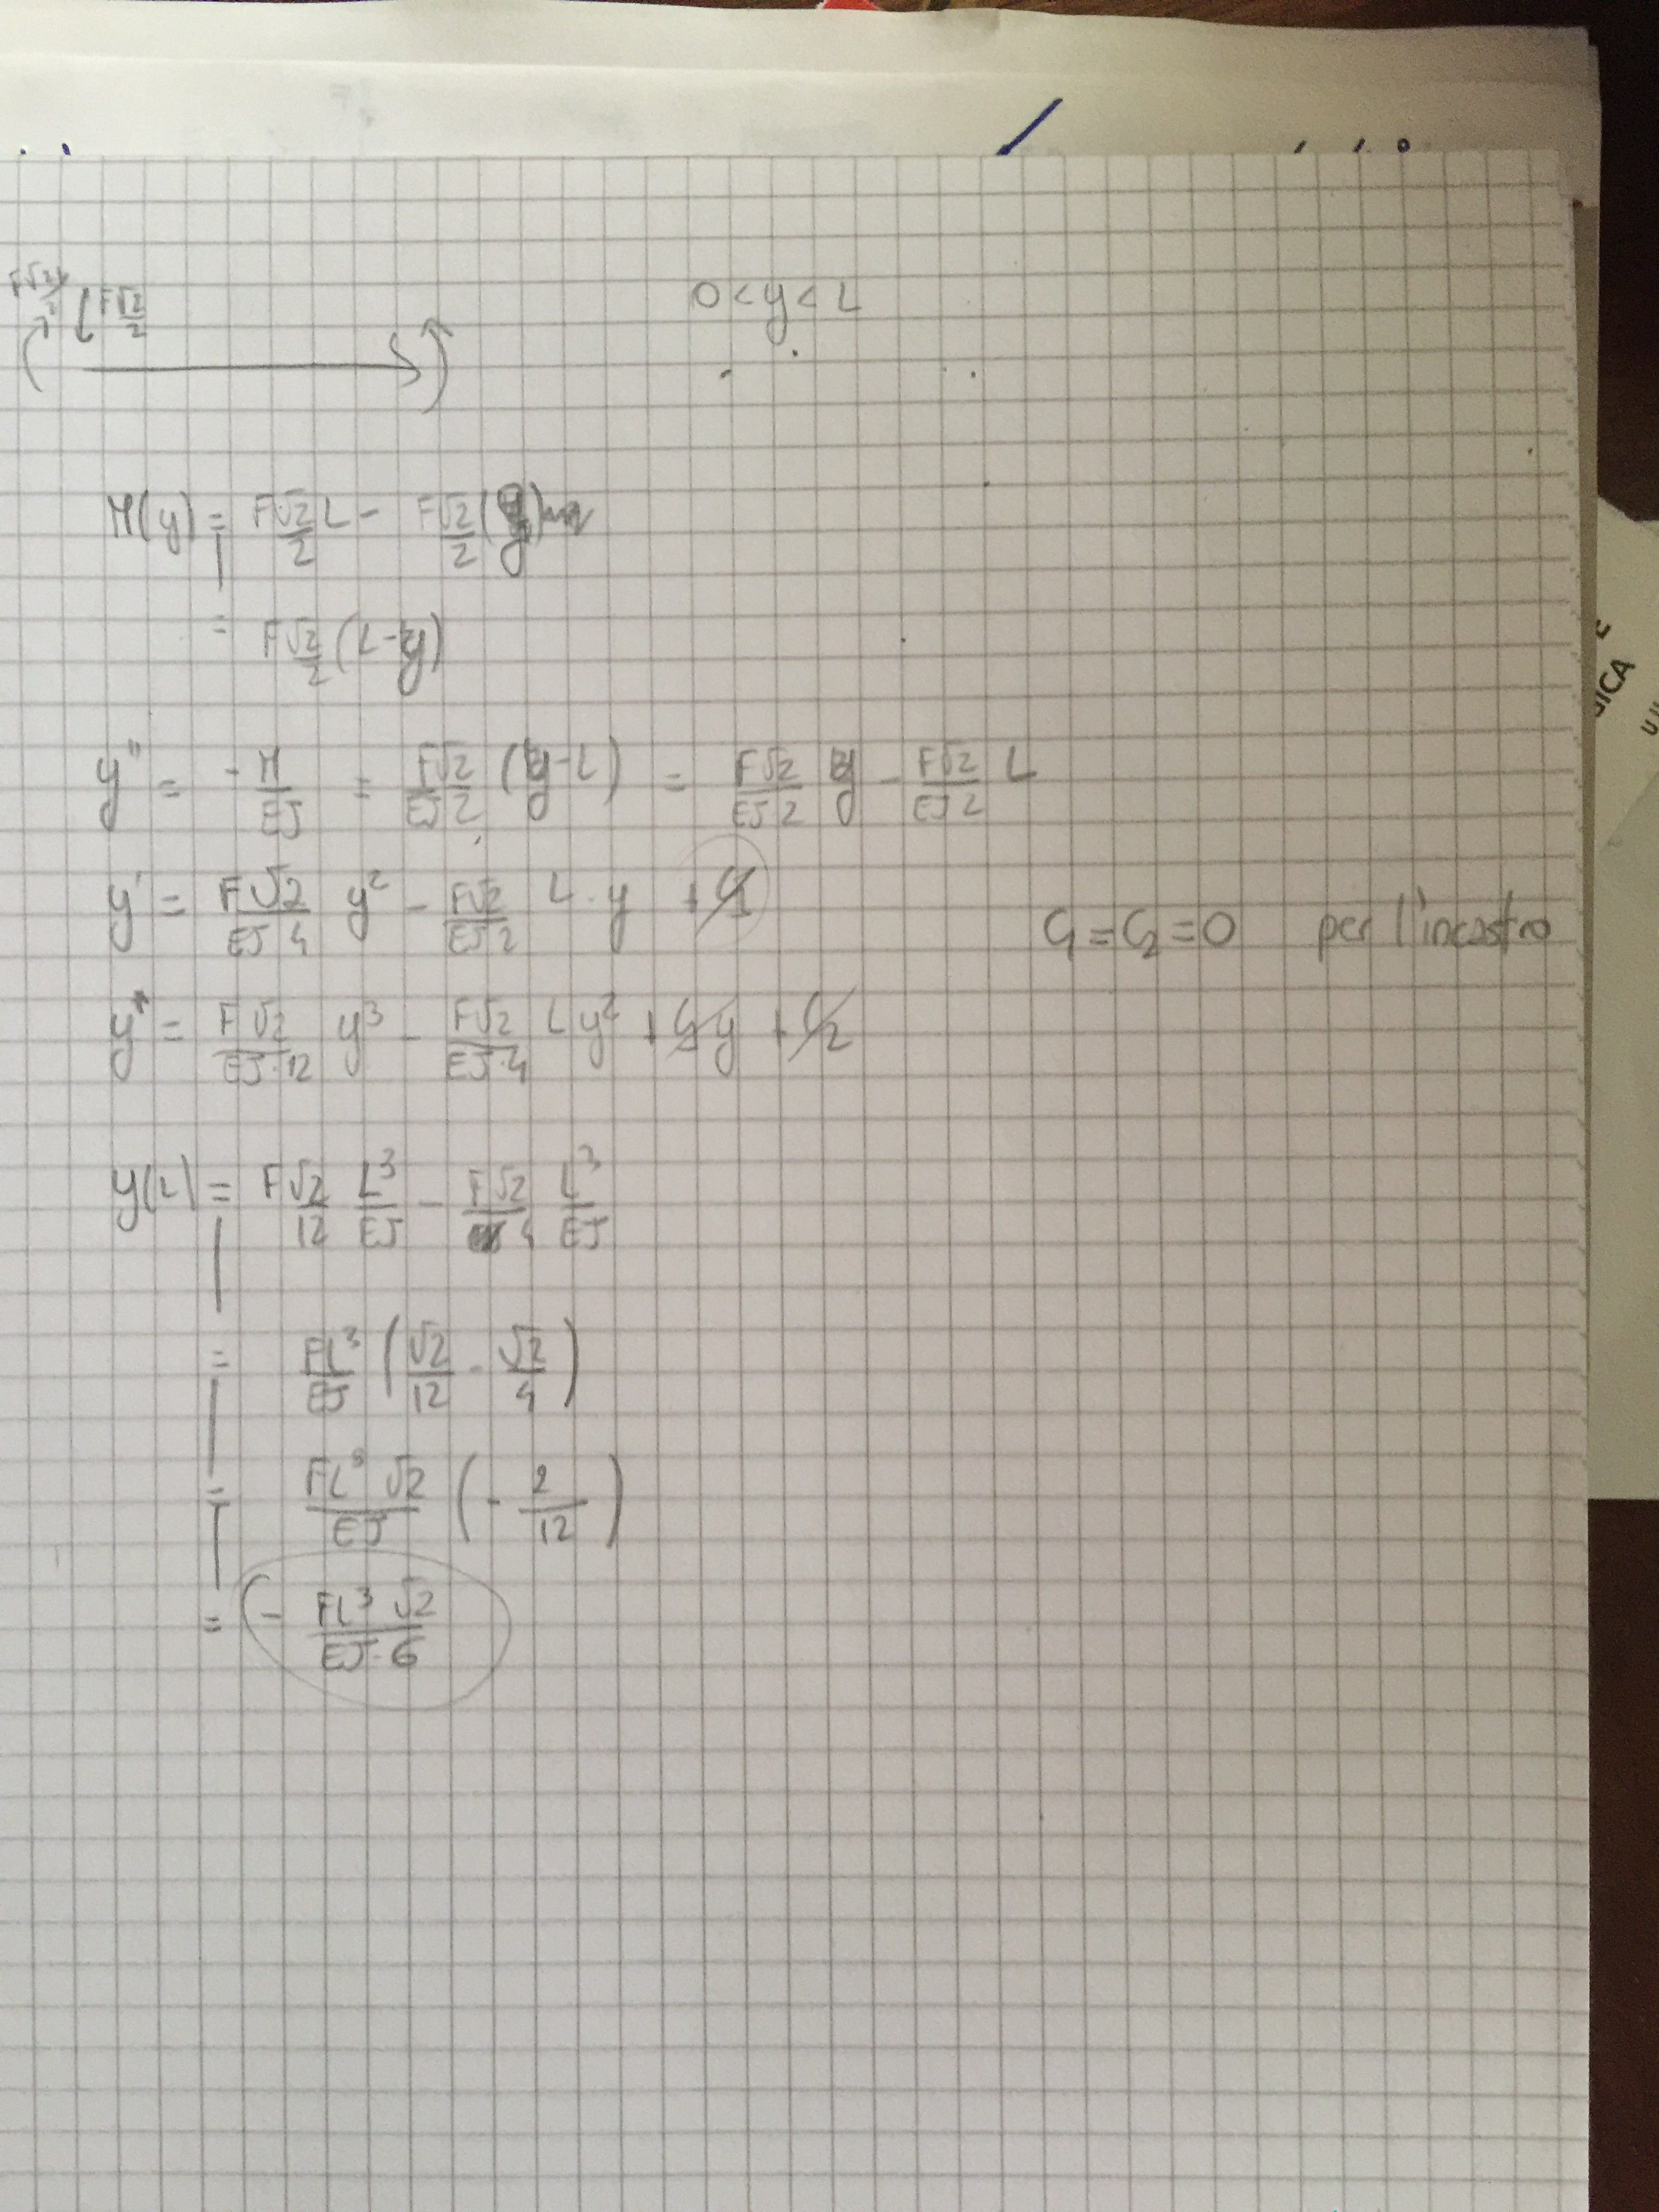 F√2/2 L F√2/2
0 < y < L
M(y) = F√2/2 L - F√2/2 (y)
= F√2/2 (L-y)
y'' = - M/EJ = F√2/EJ2 (y-L) = F√2/EJ2 y - F√2/EJ2 L
y' = F√2/EJ4 y² - F√2/EJ2 L·y + C1
C1 = C2 = 0 per l'incastro
y = F√2/EJ·12 y³ - F√2/EJ·4 L y² + C1y + C2
y(L) = F√2/12 L³/EJ - F√2/4 L³/EJ
= FL³/EJ ( √2/12 - √2/4 )
= FL³ √2/EJ ( - 2/12 )
= - FL³ √2/EJ·6
SICA